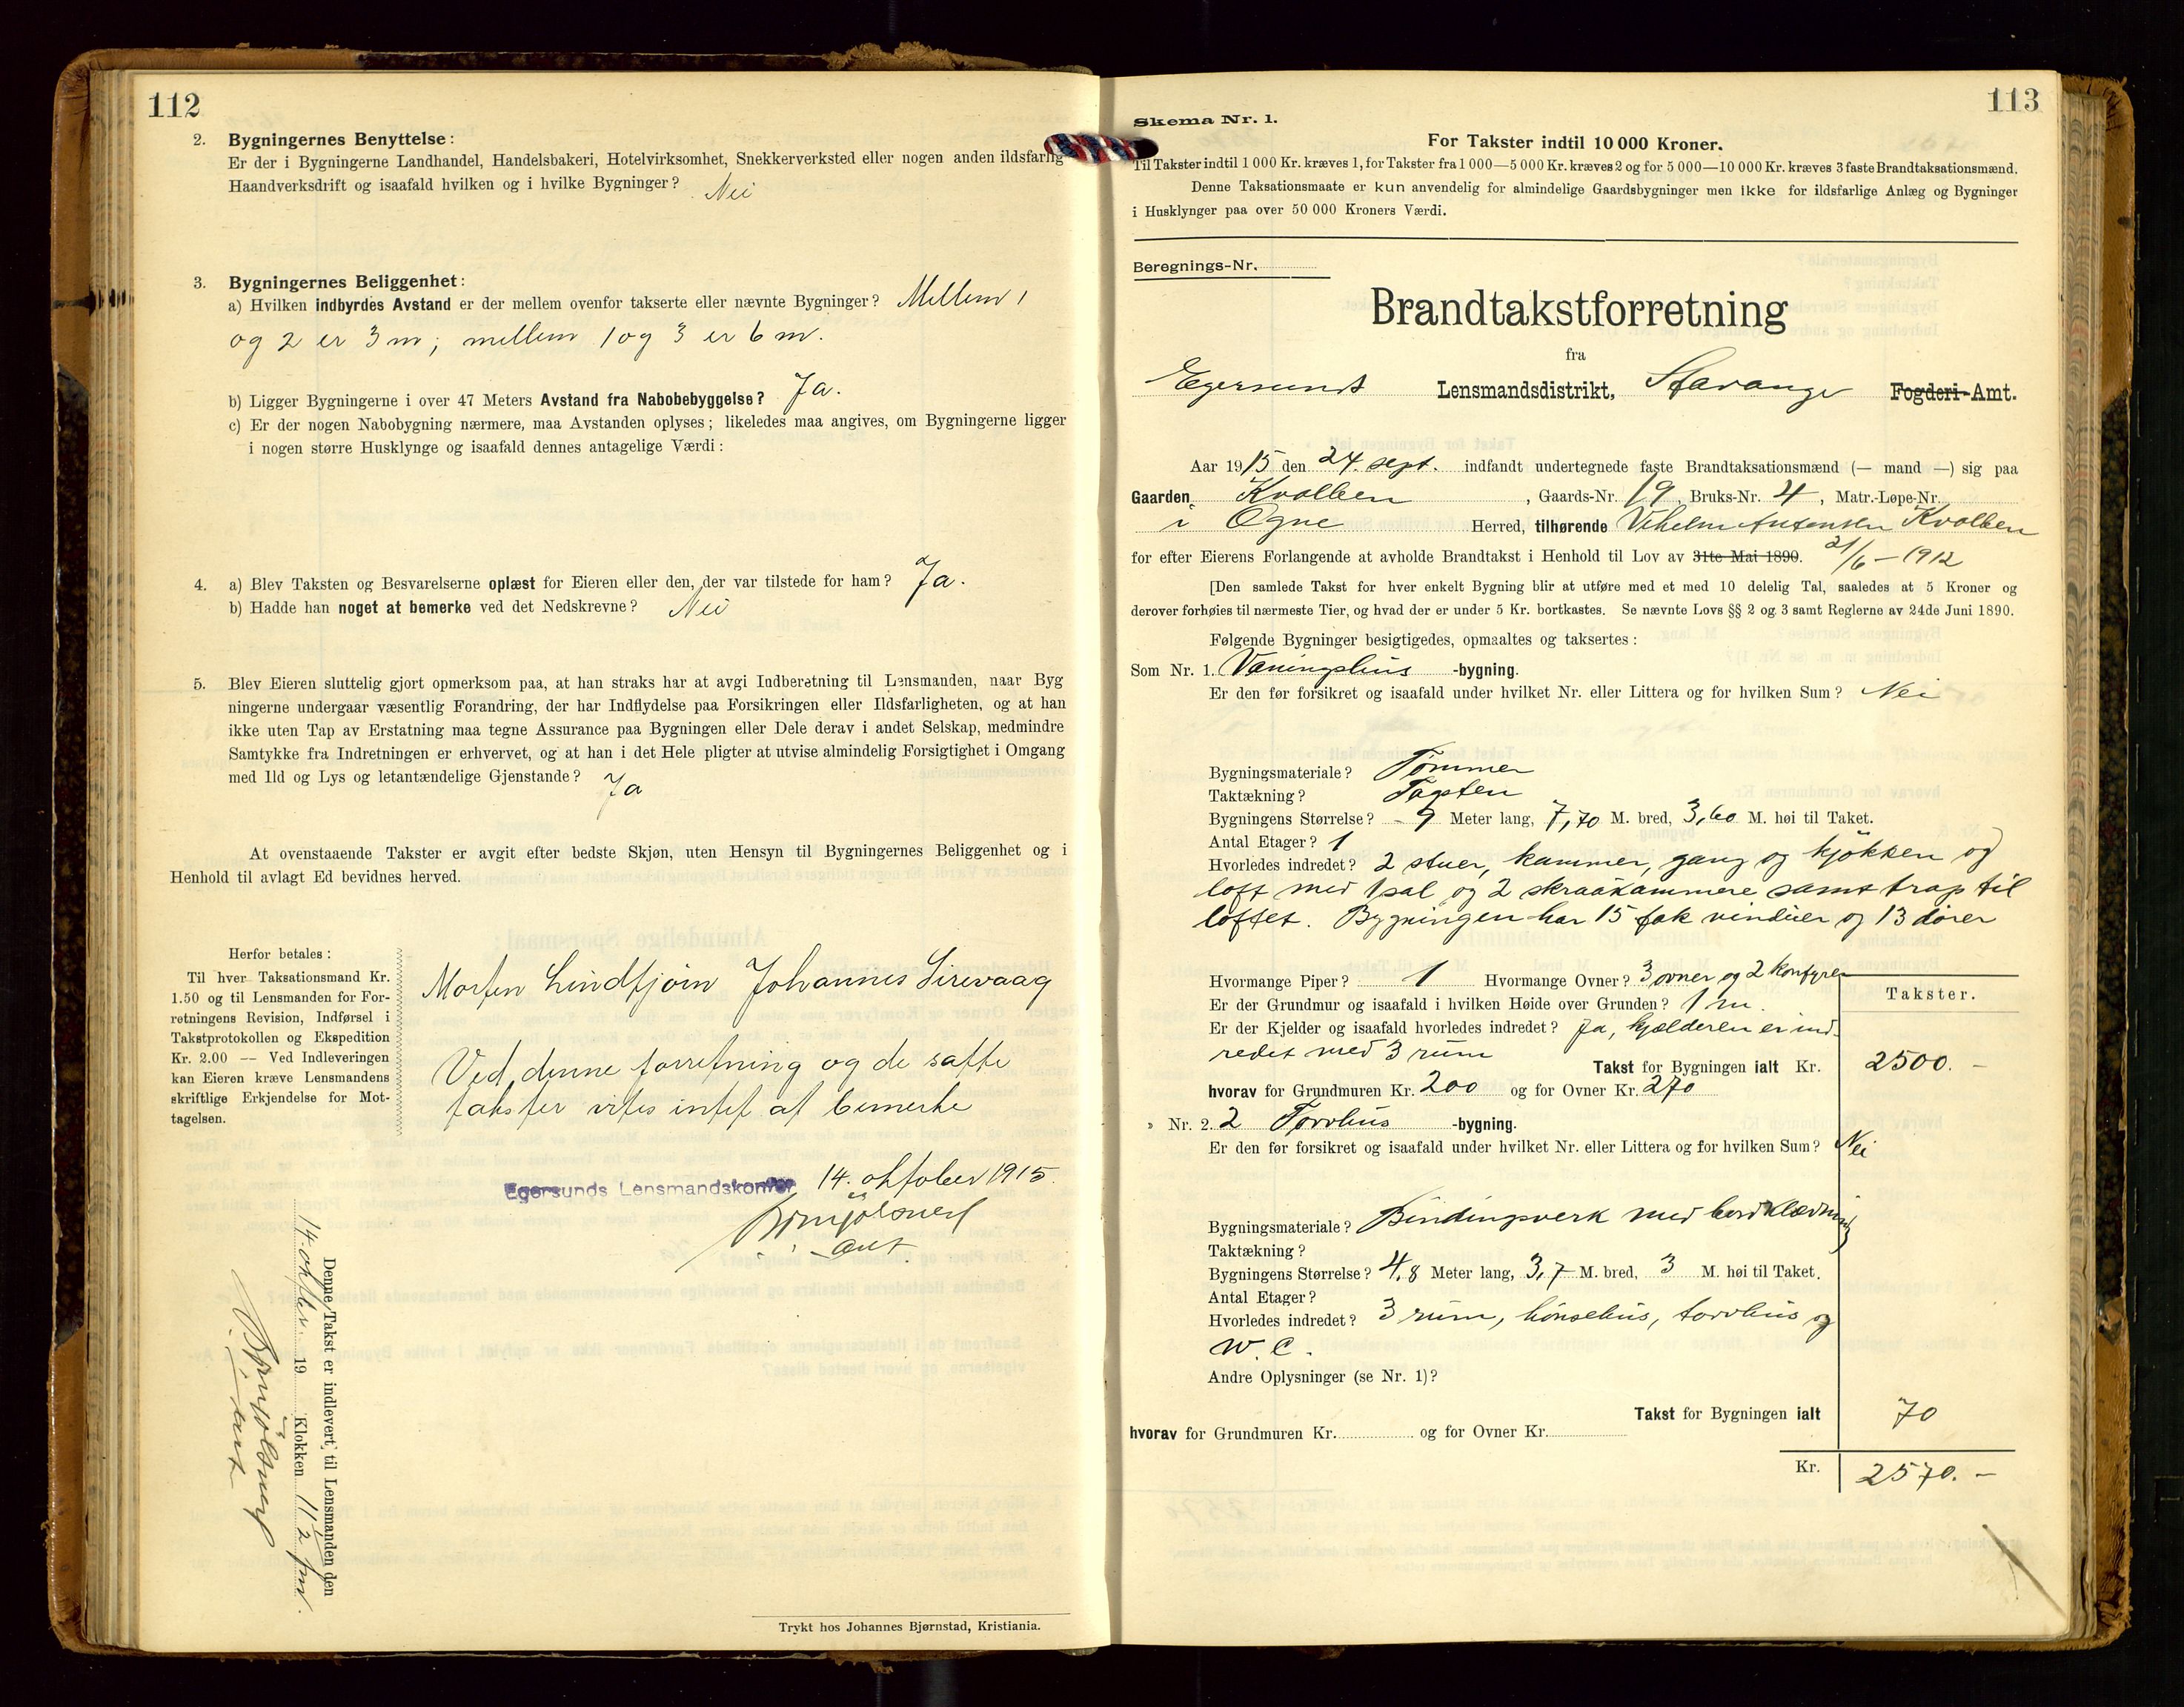 112
2. Bygningernes Benyttelse:
Er der i Bygningerne Landhandel, Handelsbakeri, Hotelvirksomhet, Snekkerverksted eller nogen anden ildsfarlig
Haandverksdrift og isaafald hvilken og i hvilke Bygninger? Nei
3. Bygningernes Beliggenhet:
a) Hvilken indbyrdes Avstand er der mellem ovenfor takserte eller nævnte Bygninger? Mellem 1
og 2 er 3 m; mellem 1 og 3 er 6 m.
b) Ligger Bygningerne i over 47 Meters Avstand fra Nabobebyggelse? Ja.
c) Er der nogen Nabobygning nærmere, maa Avstanden oplyses; likeledes maa angives, om Bygningerne ligger
i nogen større Husklynge og isaafald dennes antagelige Værdi:
4. a) Blev Taksten og Besvarelserne oplæst for Eieren eller den, der var tilstede for ham? Ja.
b) Hadde han noget at bemerke ved det Nedskrevne? Nei
5. Blev Eieren sluttelig gjort opmerksom paa, at han straks har at avgi Indberetning til Lensmanden, naar Byg
ningerne undergaar væsentlig Forandring, der har Indflydelse paa Forsikringen eller Ildsfarligheten, og at han
ikke uten Tap av Erstatning maa tegne Assurance paa Bygningen eller Dele derav i andet Selskap, medmindre
Samtykke fra Indretningen er erhvervet, og at han i det Hele pligter at utvise almindelig Forsigtighet i Omgang
med Ild og Lys og letantændelige Gjenstande? Ja
At ovenstaaende Takster er avgit efter bedste Skjøn, uten Hensyn til Bygningernes Beliggenhet og i
Henhold til avlagt Ed bevidnes herved.
Herfor betales:
Til hver Taksationsmand Kr.
1.50 og til Lensmanden for For-
retningens Revision, Indførsel i
Takstprotokollen og Ekspedition
Kr. 2.00 — Ved Indleveringen
kan Eieren kræve Lensmandens
skriftlige Erkjendelse for Mot-
tagelsen.
Morten Lindtjörn Johannes Sirevaag
Ved denne forretning og de satte
takster vites intet at bemerke
Egersunds Lensmandskontor 14. oktober 1915.
Denne Takst er indlevert til Lensmanden den
14. oktber. 19 Klokken 11½ fm.
Trykt hos Johannes Bjørnstad, Kristiania.
113
Skema Nr. 1.
For Takster indtil 10 000 Kroner.
Til Takster indtil 1 000 Kr. kræves 1, for Takster fra 1 000—5 000 Kr. kræves 2 og for 5 000—10 000 Kr. kræves 3 faste Brandtaksationsmænd.
Denne Taksationsmaate er kun anvendelig for almindelige Gaardsbygninger men ikke for ildsfarlige Anlæg og Bygninger
i Husklynger paa over 50 000 Kroners Værdi.
Beregnings-Nr.
Brandtakstforretning
fra
Egersund Lensmandsdistrikt, Stavanger Fogderi-Amt.
Aar 1915 den 24 sept. indfandt undertegnede faste Brandtaksationsmænd (— mand —) sig paa
Gaarden Kvalben, Gaards-Nr. 19, Bruks-Nr. 4, Matr.-Løpe-Nr.
i Ogne Herred, tilhørende Vilhelm Antonsen Kvalben
for efter Eierens Forlangende at avholde Brandtakst i Henhold til Lov av 31te Mai 1890. 21/6 - 1912
[Den samlede Takst for hver enkelt Bygning blir at utføre med et med 10 delelig Tal, saaledes at 5 Kroner og
derover forhøies til nærmeste Tier, og hvad der er under 5 Kr. bortkastes. Se nævnte Lovs §§ 2 og 3 samt Reglerne av 24de Juni 1890.
Følgende Bygninger besigtigedes, opmaaltes og taksertes:
Som Nr. 1. Vaningshus -bygning.
Er den før forsikret og isaafald under hvilket Nr. eller Littera og for hvilken Sum? Nei
Bygningsmateriale? Tømmer
Taktækning? Tagsten
Bygningens Størrelse? 9 Meter lang, 7,70 M. bred, 3,60 M. høi til Taket.
Antal Etager? 1
Hvorledes indredet? 2 stuer, kammer, gang og kjökken og
loft med 1 sal og 2 skraakammere samt trap til
loftet. Bygningen har 15 fak vinduer og 13 dører
Hvormange Piper? 1 Hvormange Ovner? 3 ovner og 2 komfyrer
Takster.
Er der Grundmur og isaafald i hvilken Høide over Grunden? 1 m.
Er der Kjelder og isaafald hvorledes indredet? Ja, kjælderen er ind-
redet med 3 rum
Takst for Bygningen ialt Kr. 2500. -
hvorav for Grundmuren Kr. 200 og for Ovner Kr. 270
» Nr. 2. 2 Torvhus -bygning.
Er den før forsikret og isaafald under hvilket Nr. eller Littera og for hvilken Sum? Nei
Bygningsmateriale? Bindingsverk med bordklædning
Taktækning?
Bygningens Størrelse? 4,8 Meter lang, 3,7 M. bred, 3 M. høi til Taket.
Antal Etager?
Hvorledes indredet? 3 rum, hönsehus, torvhus og
W. C.
Andre Oplysninger (se Nr. 1)?
Takst for Bygningen ialt 70
hvorav for Grundmuren Kr. og for Ovner Kr.
Kr. 2570. -